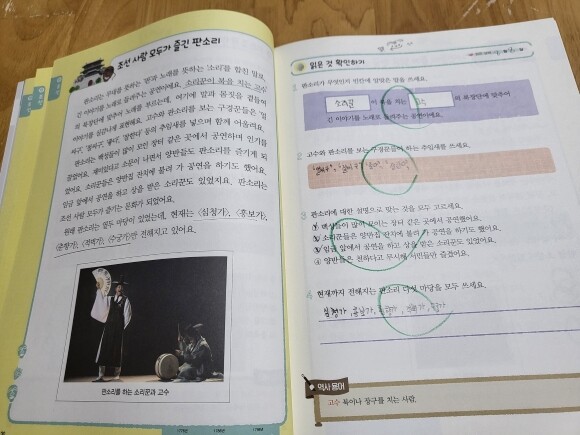 조선 사람 모두가 즐긴 판소리
판소리는 무대를 뜻하는 '판'과 노래를 뜻하는 '소리'를 합친 말로,
긴 이야기를 노래로 들려주는 공연이에요. 소리꾼이 북을 치는 고수
의 북장단에 맞추어 노래를 부르는데, 여기에 말과 몸짓을 곁들여
이야기를 실감나게 표현해요. 고수와 판소리를 보는 구경꾼들은 '얼
씨구', '절씨구', '좋다', '잘한다' 등의 추임새를 넣으며 함께 어울려요.
판소리는 백성들이 많이 모인 장터 같은 곳에서 공연하며 인기를
끌었어요. 재미있다고 소문이 나면서 양반들도 판소리를 즐기게 되
었어요. 소리꾼들은 양반집 잔치에 불려 가 공연을 하기도 했어요.
임금 앞에서 공연을 하고 상을 받은 소리꾼도 있었지요. 판소리는
조선 사람 모두가 즐기는 문화가 되었어요.
원래 판소리는 열두 마당이 있었는데, 현재는 〈심청가〉, 〈흥보가〉,
〈춘향가〉, 〈적벽가〉, 〈수궁가〉만 전해지고 있어요.
판소리를 하는 소리꾼과 고수
읽은 것 확인하기
1 판소리가 무엇인지 빈칸에 알맞은 말을 쓰세요.
소리꾼 이 북을 치는 고수 의 북장단에 맞추어
긴 이야기를 노래로 들려주는 공연이에요.
2 고수와 판소리를 보는 구경꾼들이 하는 추임새를 쓰세요.
"얼씨구", "절씨구", "좋다", "잘한다"
3 판소리에 대한 설명으로 맞는 것을 모두 고르세요.
① 백성들이 많이 모이는 장터 같은 곳에서 공연했어요.
② 소리꾼들은 양반집 잔치에 불려 가 공연을 하기도 했어요.
③ 임금 앞에서 공연을 하고 상을 받은 소리꾼도 있었어요.
④ 양반들은 천하다고 무시해 서민들만 즐겼어요.
4 현재까지 전해지는 판소리 다섯 마당을 모두 쓰세요.
심청가, 흥보가, 춘향가, 적벽가,
역사 용어
고수 북이나 장구를 치는 사람.